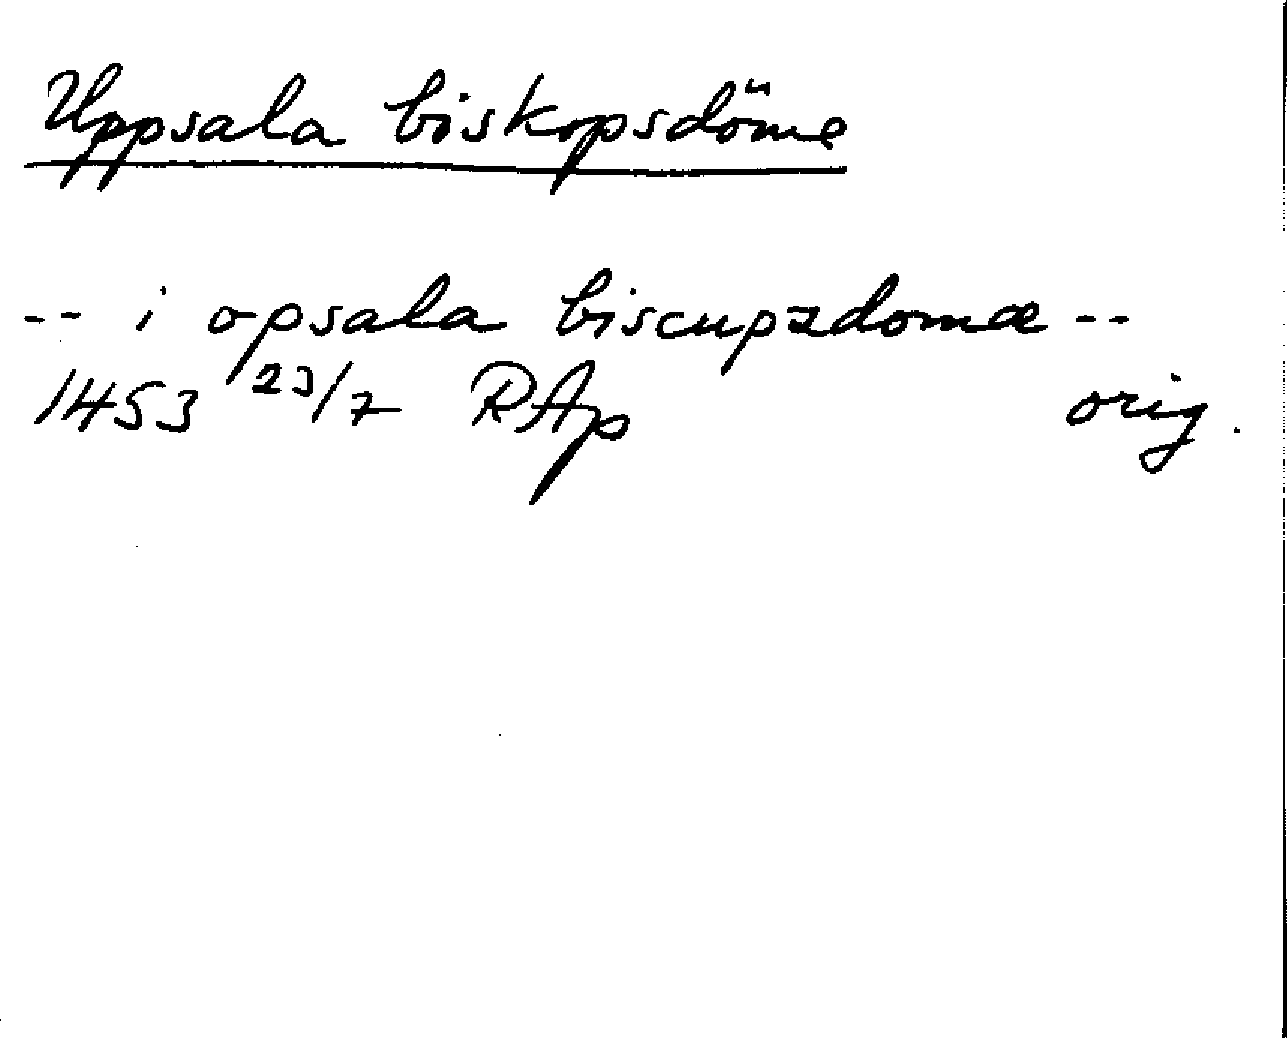 Uppsala biskopsdöme
-- i opsala biscupzdomæ --
1453 23/7 RAp orig.